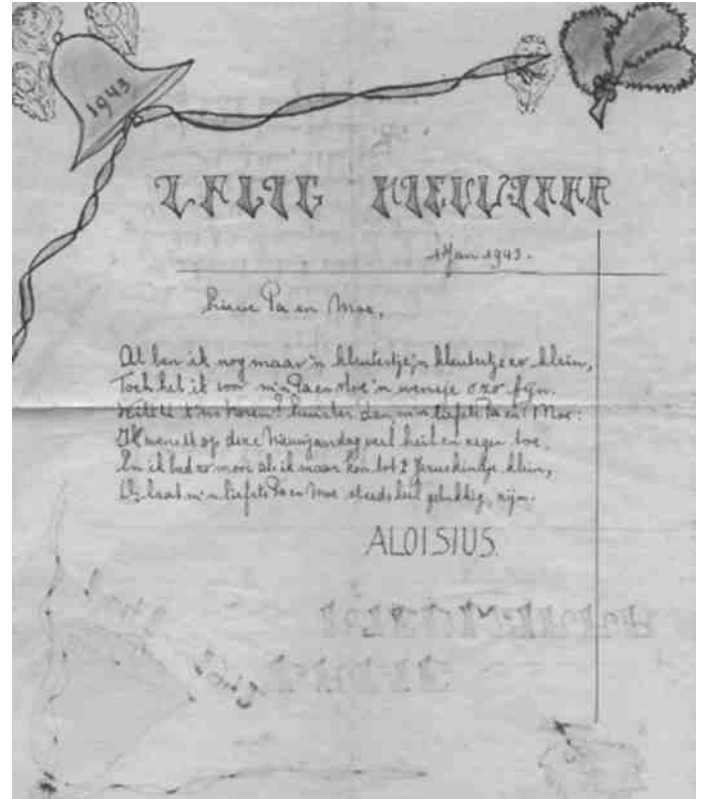 1943
ZALIG NIEUWJAAR
1 Jan 1943.
Lieve Pa en Moe,
Al ben ik nog maar 'n kleutertje, 'n kleutertje zo klein,
Toch heb ik voor m'n Pa en Moe 'n wensje o zo fijn.
horen? Luister dan m'n liefste Pa en Moe:
Ik wens U op deze Nieuwjaardag veel heil en zegen toe.
En ik bid zo mooi als ik maar kon tot 't Jezuskindje klein,
laat m'n liefste Pa en Moe steeds heel gelukkig zijn.
ALOISIUS.